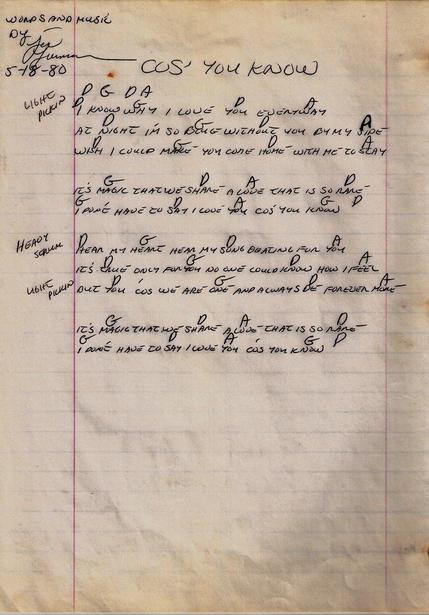 WORDS AND MUSIC
BY
5-18-80
COS' YOU KNOW
LIGHT
PICKIN
D G D A
I KNOW WHY I LOVE YOU EVERYDAY
D A
AT NIGHT IM SO BLUE WITHOUT YOU BY MY SIDE
WISH I COULD MAKE YOU COME HOME WITH ME TO STAY
G D A D
IT'S MAGIC THAT WE SHARE A LOVE THAT IS SO RARE
G D A G D
I DON'T HAVE TO SAY I LOVE YOU COS' YOU KNOW
HEAVY
STRUM
G D A
HEAR MY HEART HEAR MY SONG BEATING FOR YOU
IT'S TRUE ONLY FOR YOU NO ONE COULD KNOW HOW I FEEL
LIGHT
PICKIN
BUT YOU 'COS WE ARE ONE AND ALWAYS BE FOREVER MORE
G D A D
IT'S MAGIC THAT WE SHARE A LOVE THAT IS SO RARE
G D A G D
I DON'T HAVE TO SAY I LOVE YOU 'COS YOU KNOW